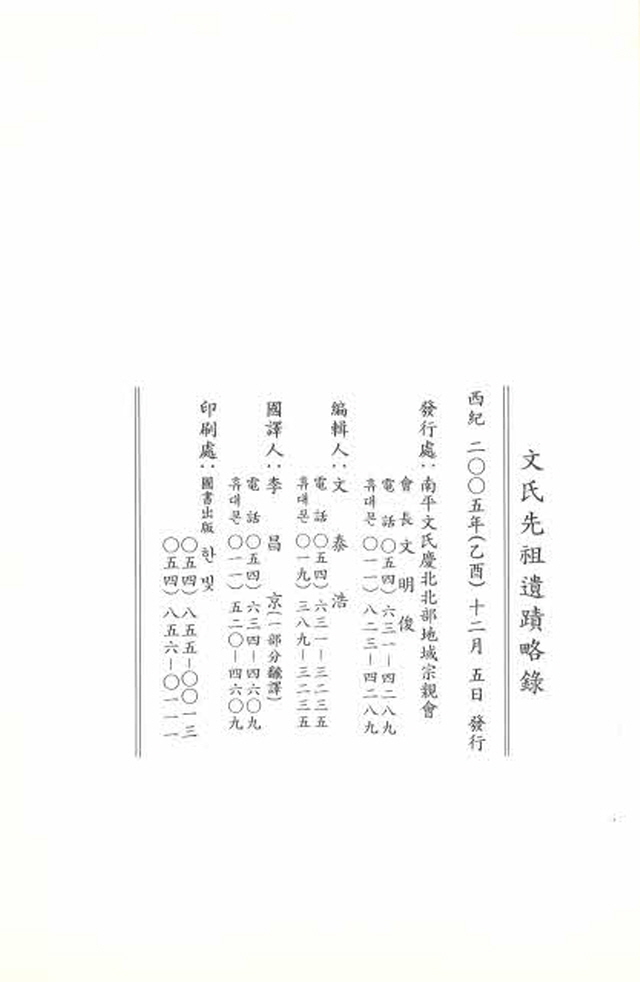 文氏先祖遺蹟略錄
西紀 二〇〇五年(乙酉) 十二月 五日 發行
發行處:南平文氏慶北北部地域宗親會
會長 文明俊
電話 〇五四) 六三一－四二八九
휴대폰 〇一一) 八二三－四二八九
編輯人:文泰浩
電話 〇五四) 六三一－三二三五
휴대폰 〇一九) 三八九－三二三五
國譯人:李昌京(一部分飜譯)
電話 〇五四) 六三四－四六〇九
휴대폰 〇一一) 五二〇－四六〇九
印刷處:圖書出版 한빛
〇五四) 八五五－〇〇一三
〇五四) 八五六－〇一一一